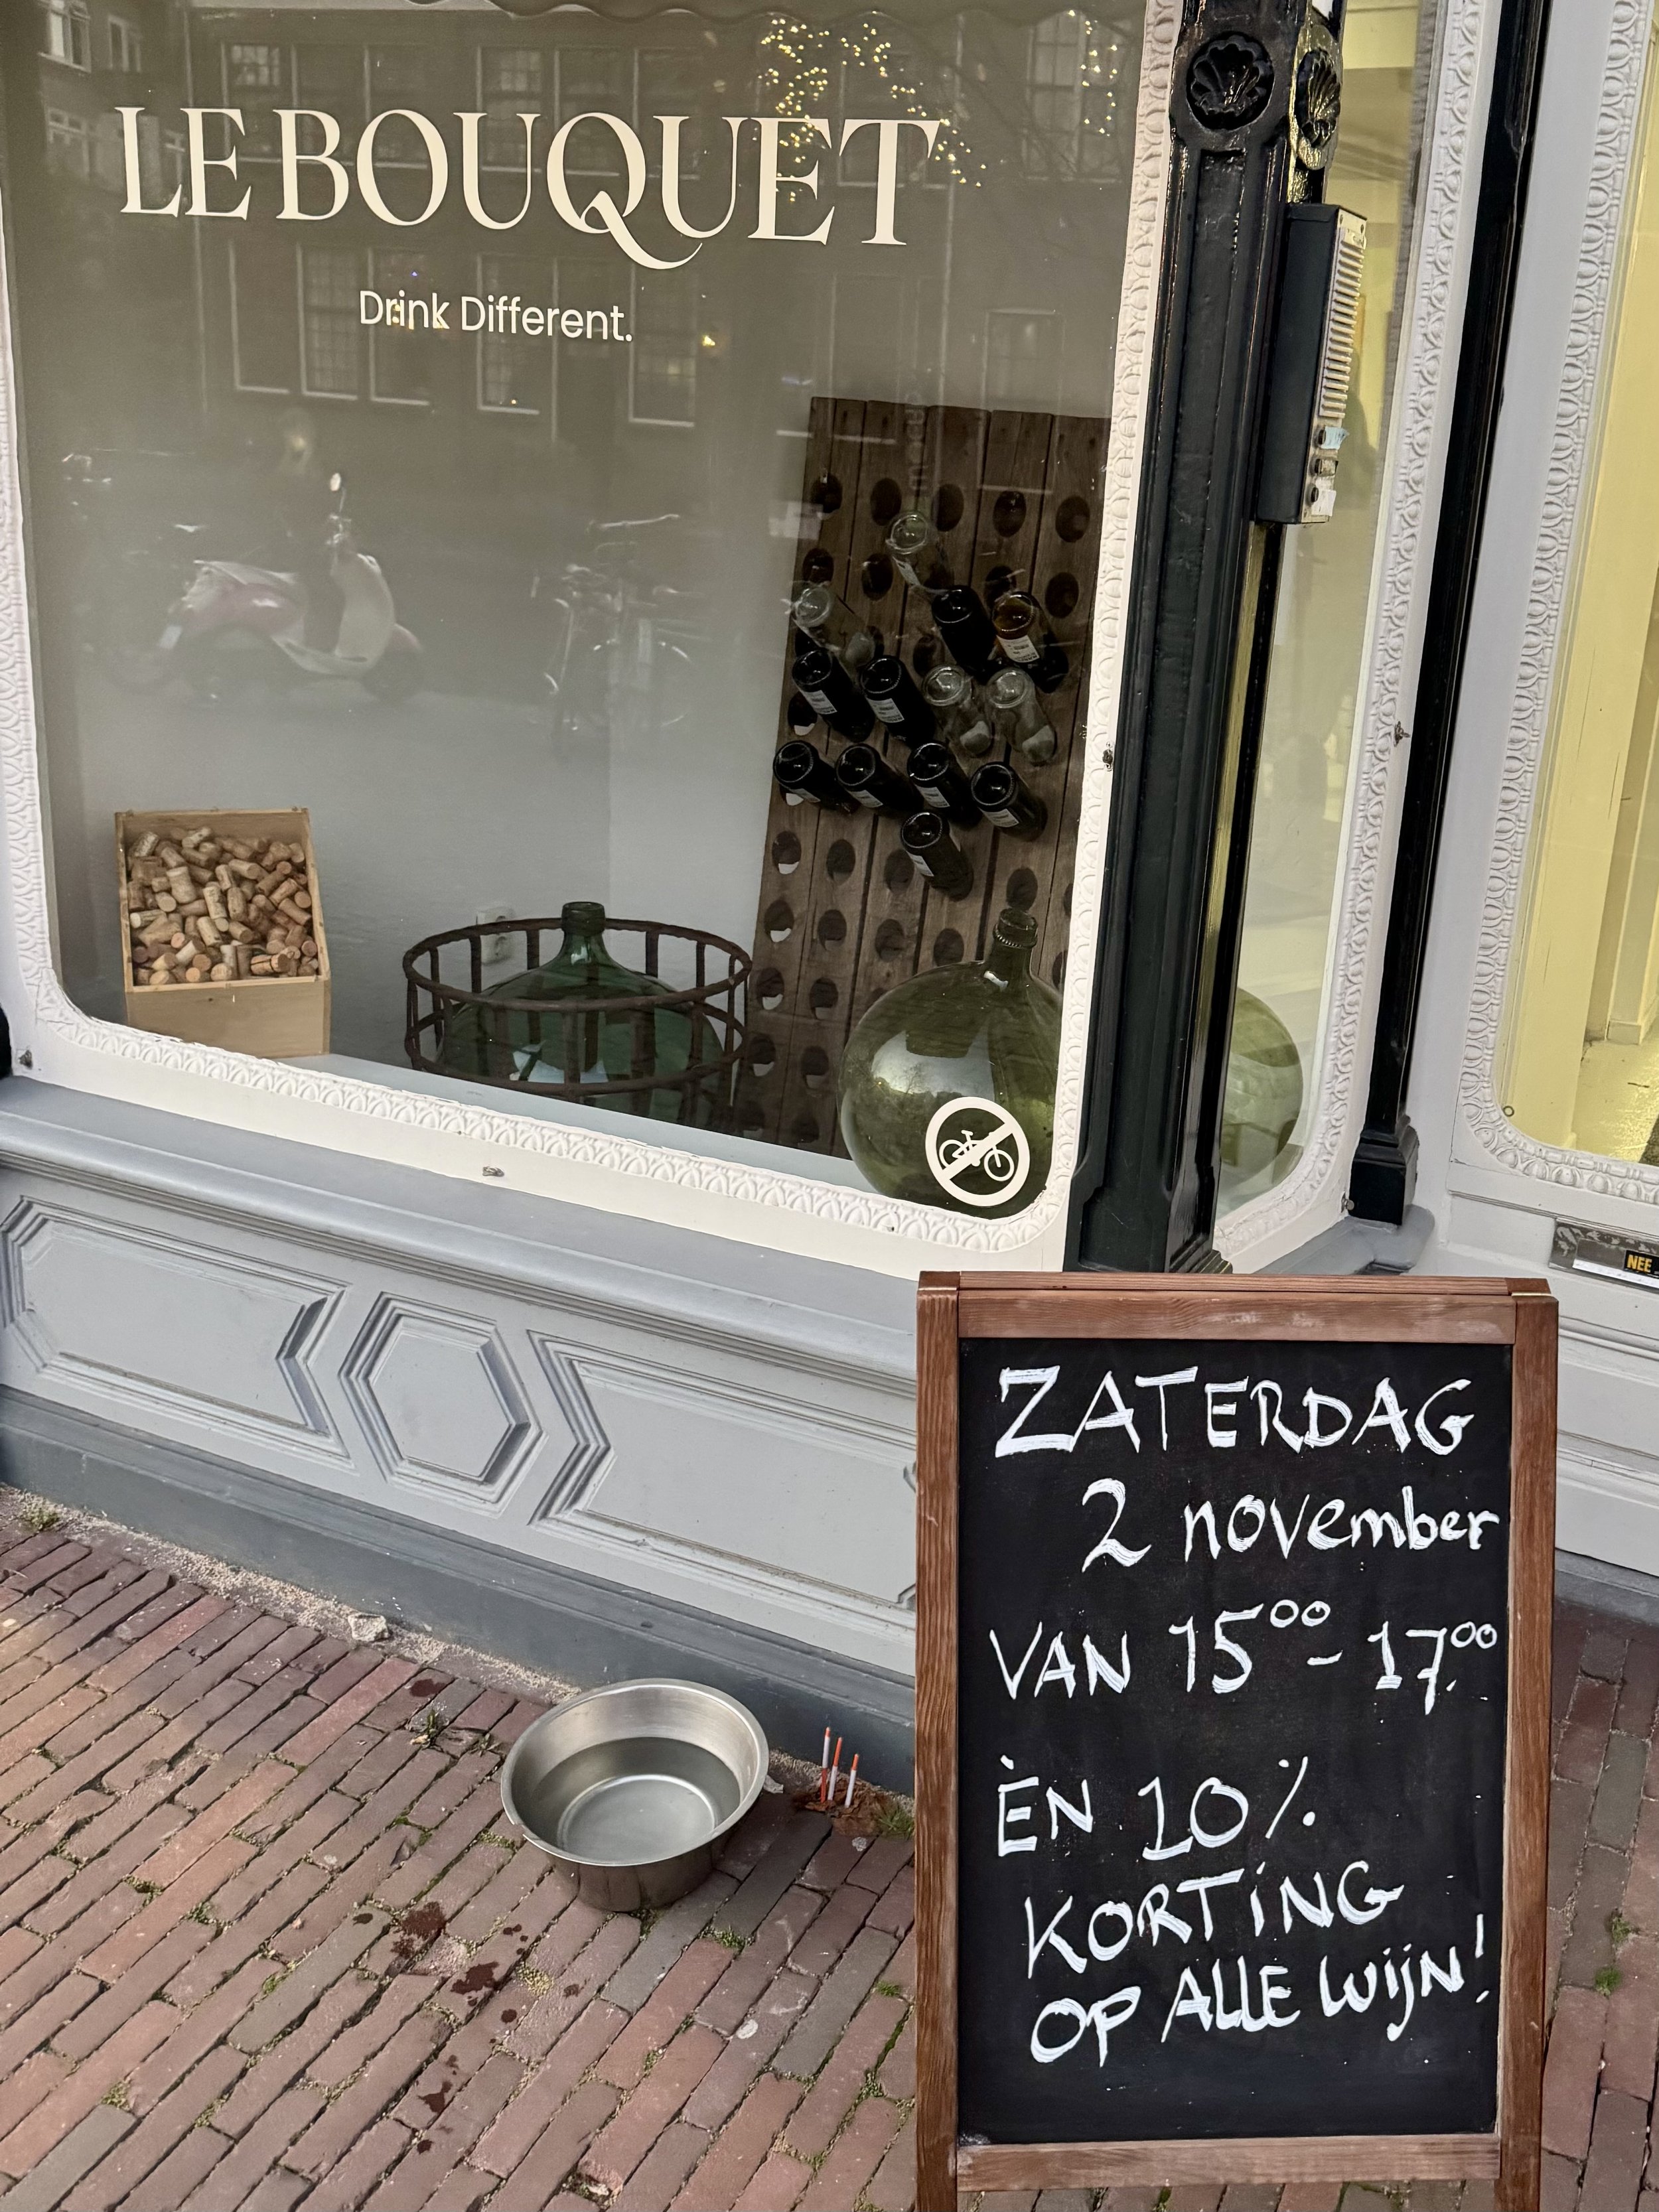 LE BOUQUET
Drink Different.
NEE
ZATERDAG
2 november
VAN 15⁰⁰ - 17.⁰⁰
ÈN 10%
KORTiNG
OP ALLE WijN!